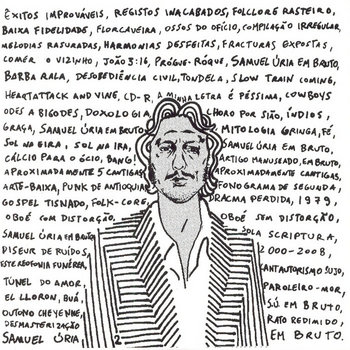 ÊXITOS IMPROVÁVEIS, REGISTOS INACABADOS, FOLCLORE RASTEIRO,
BAIXA FIDELIDADE, FLORCAVEIRA, OSSOS DO OFÍCIO, COMPILAÇÃO IRREGULAR,
MELODIAS RASURADAS, HARMONIAS DESFEITAS, FRACTURAS EXPOSTAS,
COMER O VIZINHO, JOÃO 3:16, PRÓGUE-RÓQUE, SAMUEL ÚRIA EM BRUTO,
BARBA RALA, DESOBEDIÊNCIA CIVIL, TONDELA, SLOW TRAIN COMING,
HEARTATTACK AND VINE, CD-R, A MINHA LETRA É PÉSSIMA, COWBOYS
ODES A BIGODES, DOXOLOGIA CHORO POR SIÃO, ÍNDIOS,
GRAÇA, SAMUEL ÚRIA EM BRUTO, MITOLOGIA GRINGA, FÉ,
SOL NA EIRA, SOL NA IRA, SAMUEL ÚRIA EM BRUTO,
CÁLCIO PARA O ÓCIO, BANG! ARTIGO MANUSEADO, EM BRUTO,
APROXIMADAMENTE 5 CANTIGAS APROXIMADAMENTE CANTIGAS,
ARTE-BAIXA, PUNK DE ANTIOQUIA FONOGRAMA DE SEGUNDA,
GOSPEL TISNADO, FOLK-CORE, DRACMA PERDIDA, 1979,
OBOÉ COM DISTORÇÃO, OBOÉ SEM DISTORÇÃO,
SAMUEL ÚRIA EM BRUTO SOLA SCRIPTURA,
DISEUR DE RUÍDOS 2000-2008,
ESTEREOFONIA FUNÉREA, CANTAUTORISMO SUJO,
TÚNEL DO AMOR, PAROLEIRO-MOR,
EL LLORON, BUÁ, SÚ EM BRUTO,
OUTONO CHEYENNE, RATO REDIMIDO,
DESMASTERIZAÇÃO EM BRUTO.
SAMUEL ÚRIA 2